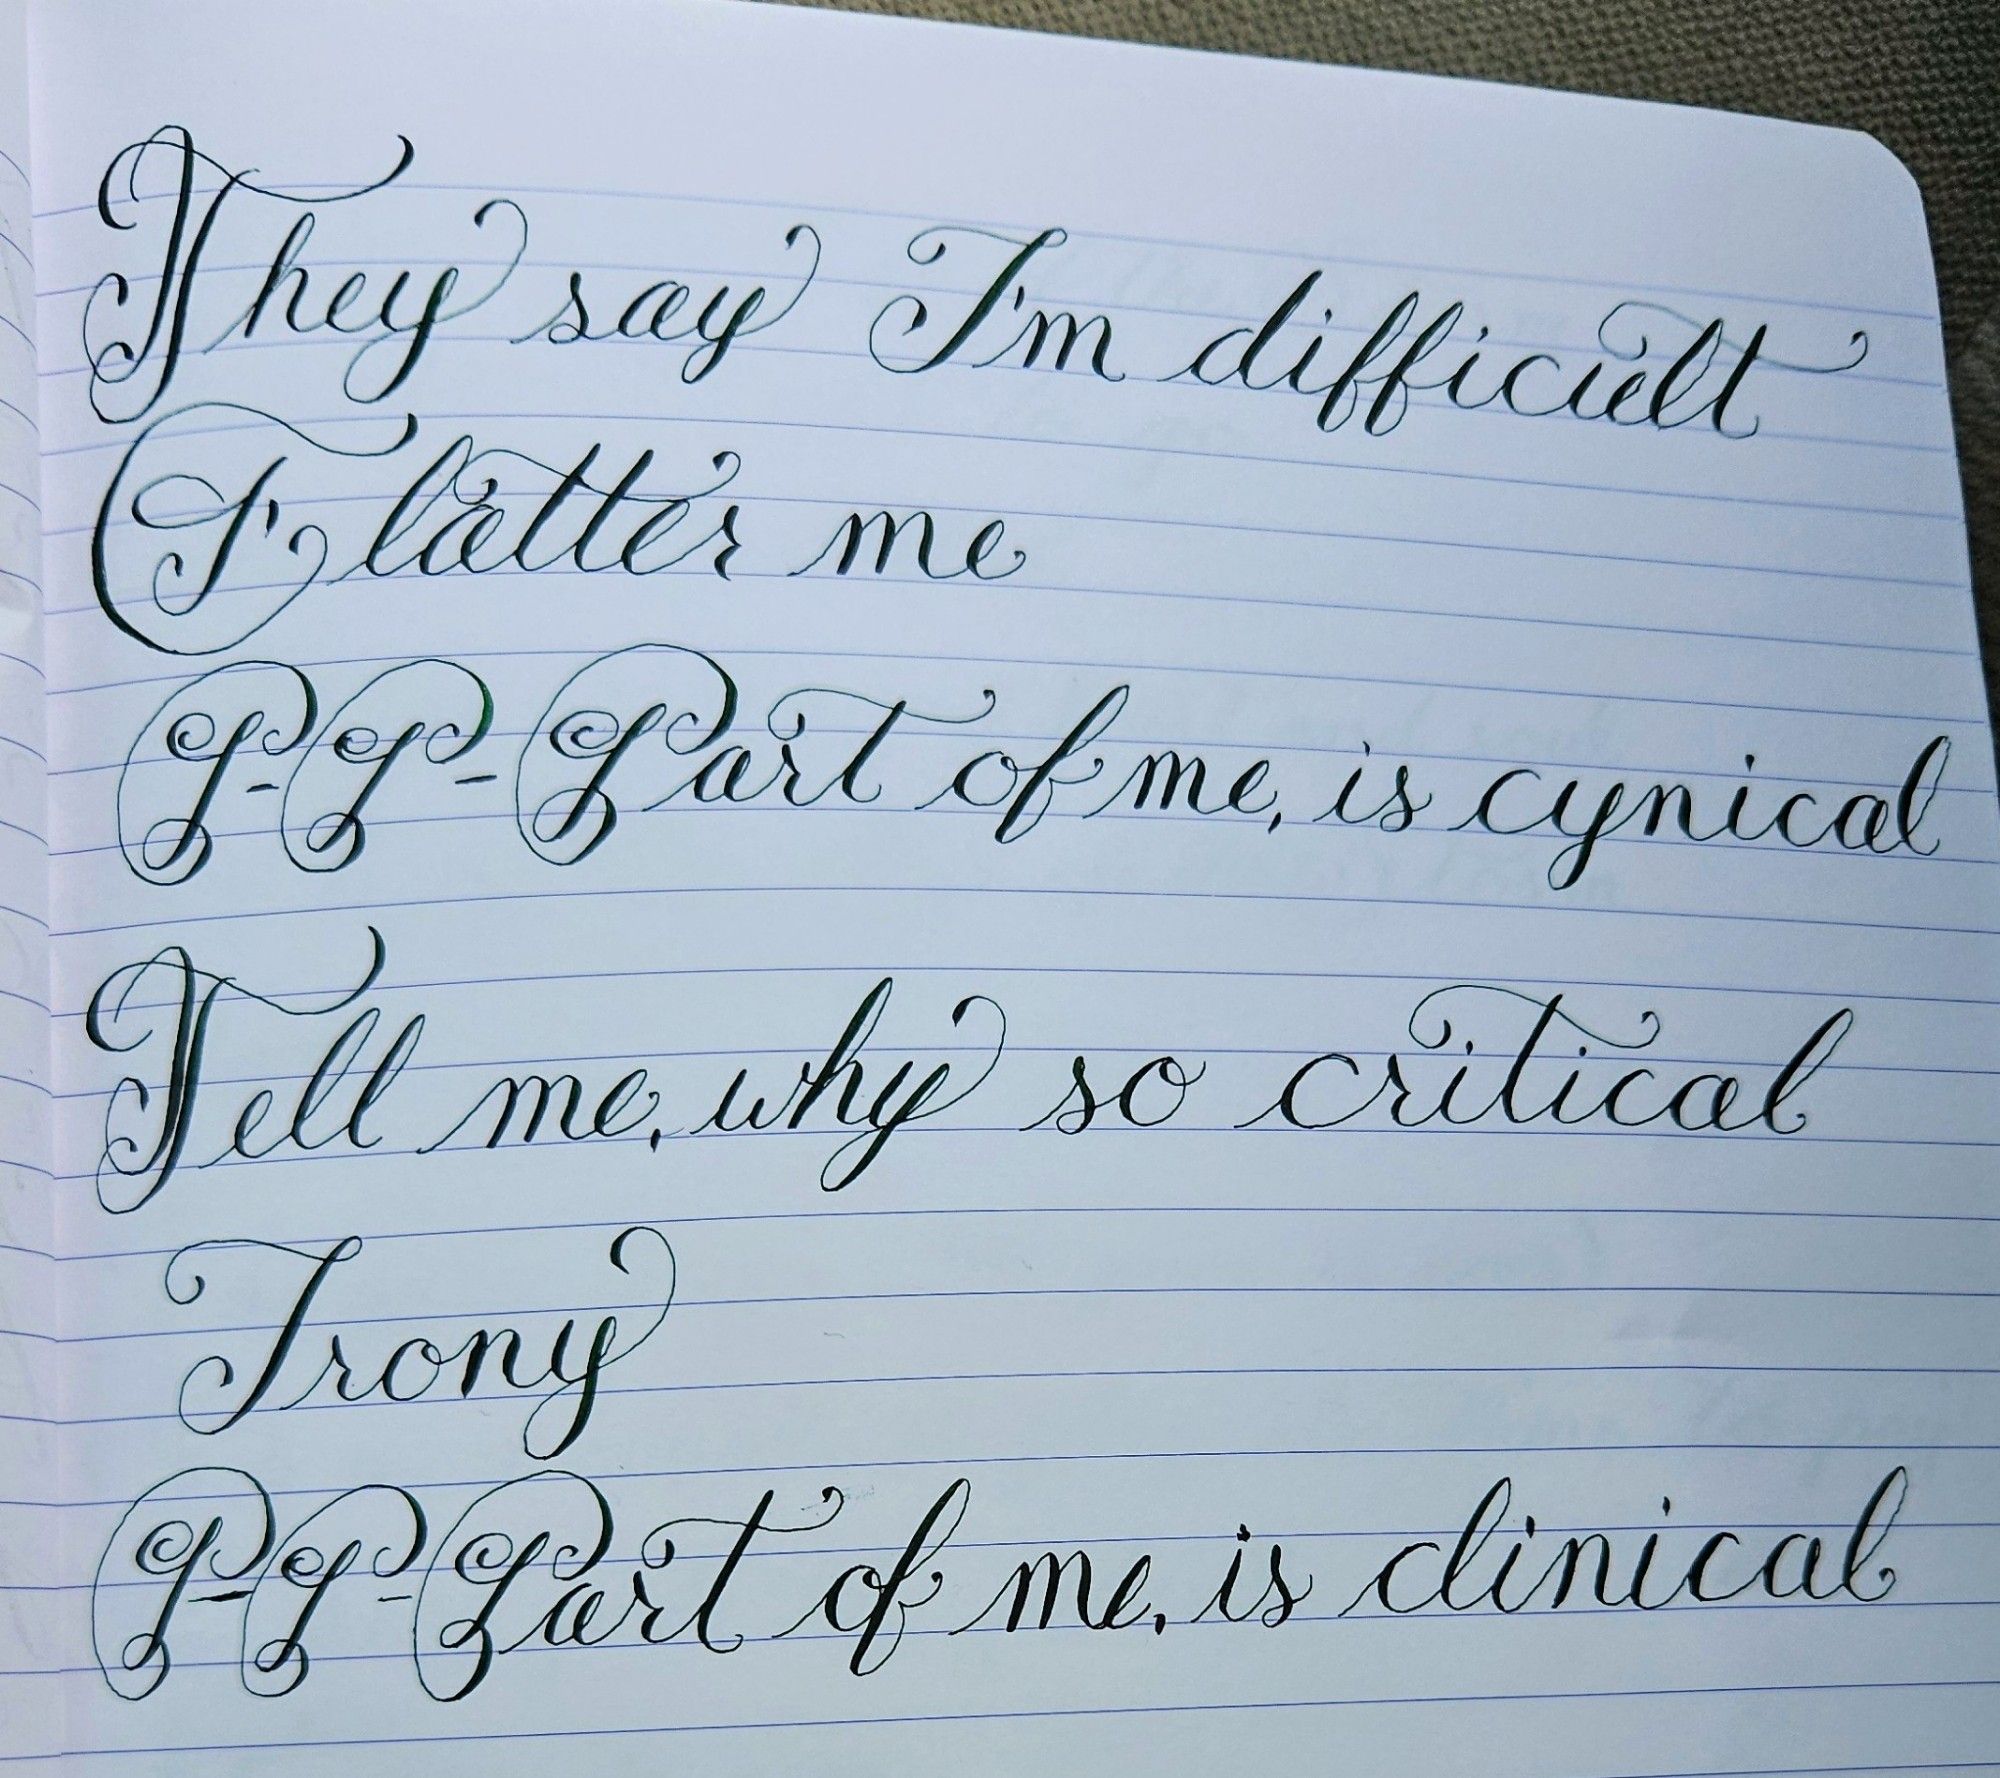 They say I'm difficult
Flatter me
P-P-Part of me, is cynical
Tell me, why so critical
Irony
P-P-Part of me, is clinical